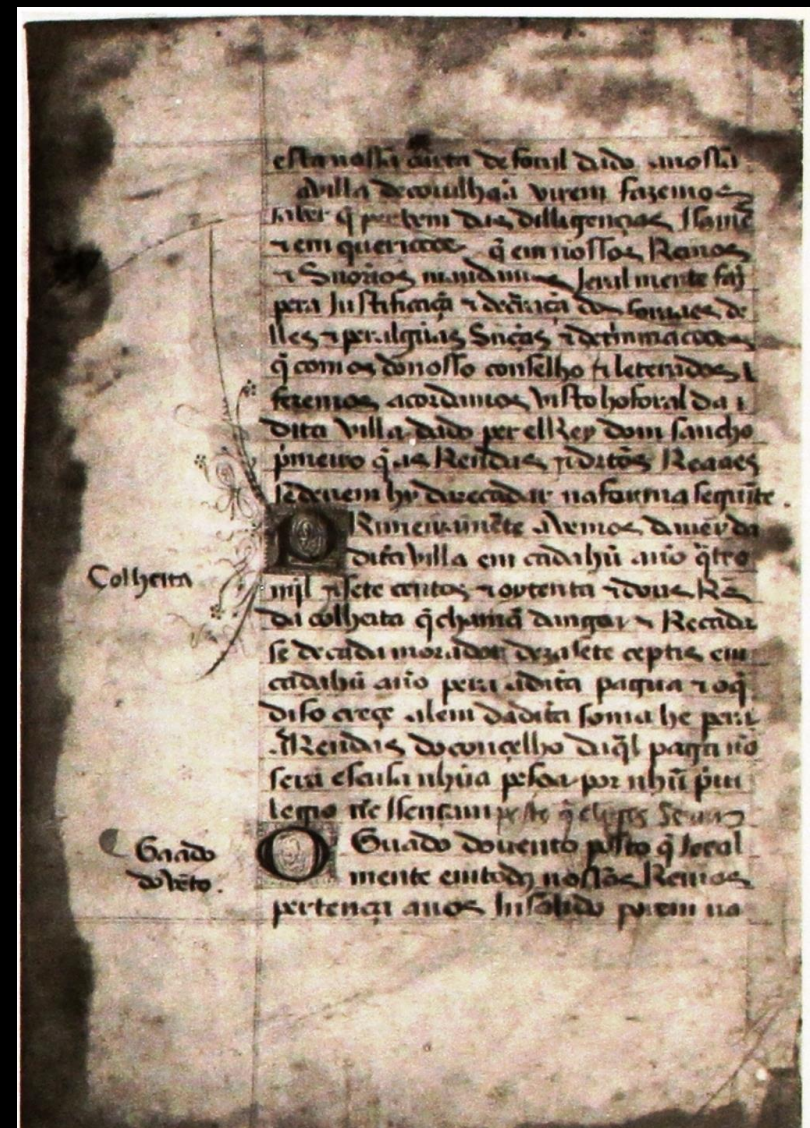 esta nossa carta de foral dado a nossa
avilla decouilhaã virem fazemos
saber q̃ per bem das dilligençias Isamẽ
⁊ em q̃ em nossos Reinos
⁊ Snorios mandamos Jeralmente faz̃
pera Justificaçã ⁊ decraçã dos foraaes de
lles ⁊ per algũas Snças ⁊ detriminacões
q̃ com os donosso conselho ⁊ leterados
fezemos acordamos Visto ho foral da
dita Villa dado per elRey dom sancho
p̃meiro q̃ as Rendas ⁊ ditos Reaaes
se deuem hy darecadar na forma seguĩte.
PRimeiramẽte Auemos dauer da
dita villa em cadahũ año q̃tro
mjl ⁊ sete centos ⁊ oytenta ⁊ dous Rs̃
da colheita q̃ chamã dingar ⁊ Recada
se de cada morador dezasete ceptis em
cadahũ año pera adita pagua ⁊ oq̃
diso creçe alem dadita soma he pera
as Rendas do conçelho da q̃l paga nõ
sera escusa nhũa pesoa por nhũ p̃ui
legio nẽ Isençam
Colheita
O Guado douento posto q̃ Jeeral
mente em todos nossos Reinos
pertença anos Insolido porem na
Guado
do vẽto.